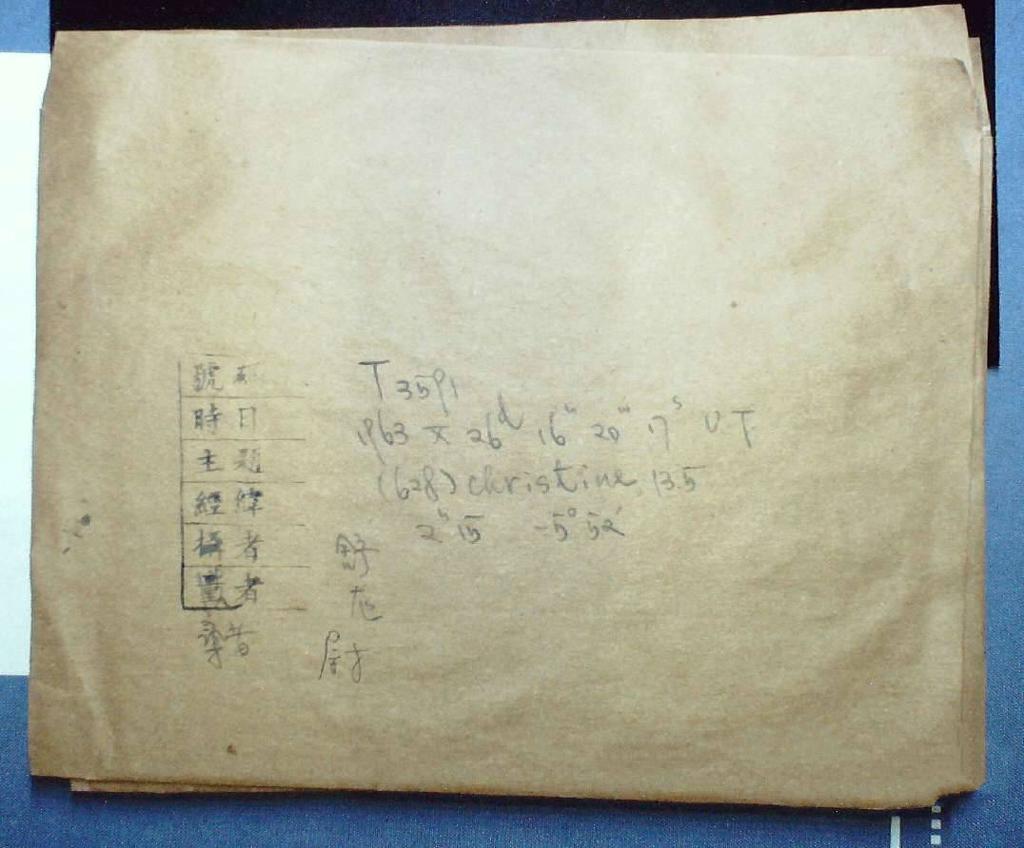 號 T 3591
時日 1963 X 26d 16h 20m 17s UT
主題 (628) christine 13.5
經緯 2h 15 -5° 52'
攝者 舒
量者 尨
算者 尉